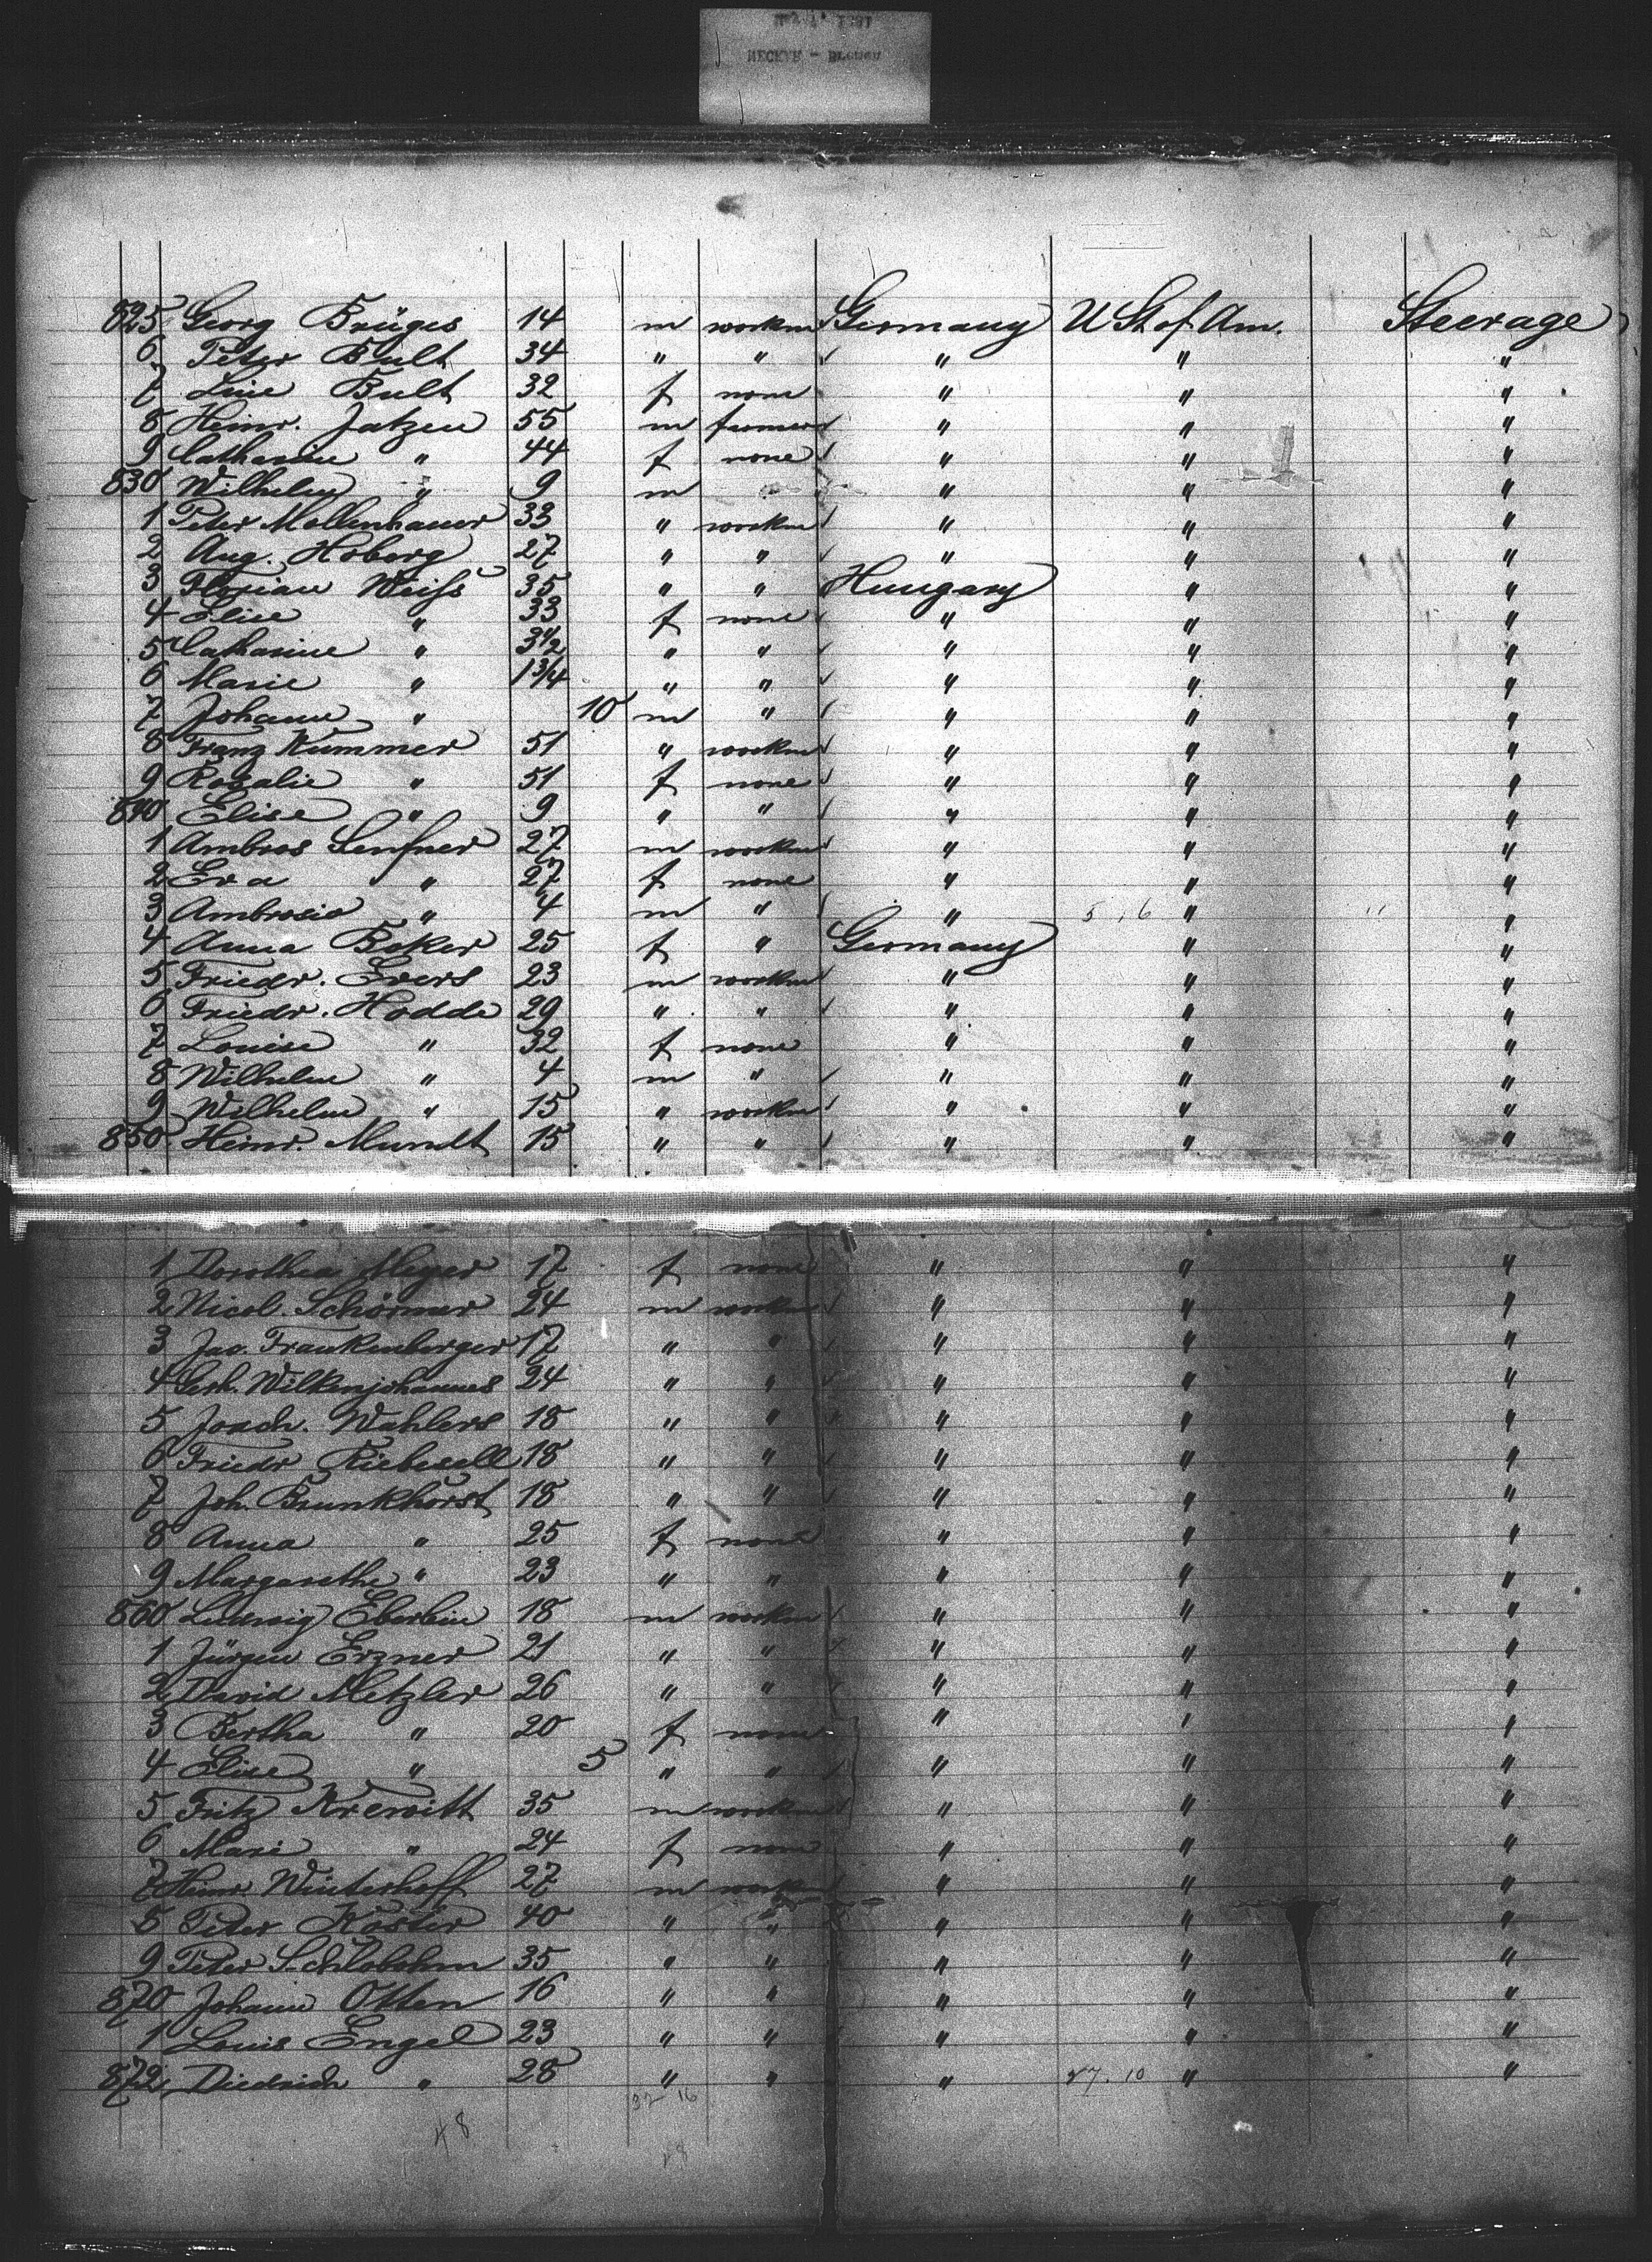 NECKAR - Bremen
825 Georg Brüges 14 m workm Germany U St of Am. Steerage
6 Peter Bult 34 " " " " "
7 Line Bult 32 f none " " "
8 Heinr. Jatzen 55 m farmer " " "
9 Catharine " 44 f none " " "
830 Wilhelm " 9 m " " "
1 Peter Mollenhauer 33 " workm " " "
2 Aug. Hoberg 27 " " " " "
3 Florian Weiſs 35 " " Hungary " "
4 Elise " 33 f none " " "
5 Catharine " 3 1/2 " " " " "
6 Marie " 1 3/4 " " " " "
7 Johann " 10 m " " " "
8 Franz Kummer 51 " workm " " "
9 Rosalie " 51 f none " " "
840 Elise " 9 " " " " "
1 Ambros Senfner 27 m workm " " "
2 Eva " 27 f none " " "
3 Ambrosio " 4 m " " 5 16 " "
4 Anna Beker 25 f " Germany " "
5 Friedr. Evers 23 m workm " " "
6 Friedr. Hodde 29 " " " " "
7 Louise " 32 f none " " "
8 Wilhelm " 4 m " " " "
9 Wilhelm " 15 " workm " " "
850 Heinr. Mundt 15 " " " " "
1 Dorothea Meyer 17 f none " " "
2 Nicol. Schörmer 24 m workm " " "
3 Jac. Frankenberger 17 " " " " "
4 Gerh. Wilkenjohannes 24 " " " " "
5 Joach. Wahlers 18 " " " " "
6 Friedr Riebesell 18 " " " " "
7 Joh. Brunkhorst 18 " " " " "
8 Anna " 25 f none " " "
9 Margarethe " 23 " " " " "
860 Ludwig Eberlein 18 m workm " " "
1 Jürgen Erzner 21 " " " " "
2 David Metzler 26 " " " " "
3 Bertha " 20 f none " " "
4 Elise " 5 " " " " "
5 Fritz Krewitt 35 m workm " " "
6 Marie " 24 f none " " "
7 Heinr. Winterhoff 27 m workm " " "
8 Peter Köster 40 " " " " "
9 Peter Schlobohm 35 " " " " "
870 Johann Otten 16 " " " " "
1 Louis Engel 23 " " " " "
872 Diedrich " 28 " " " 27. 10 " "
32 16
48